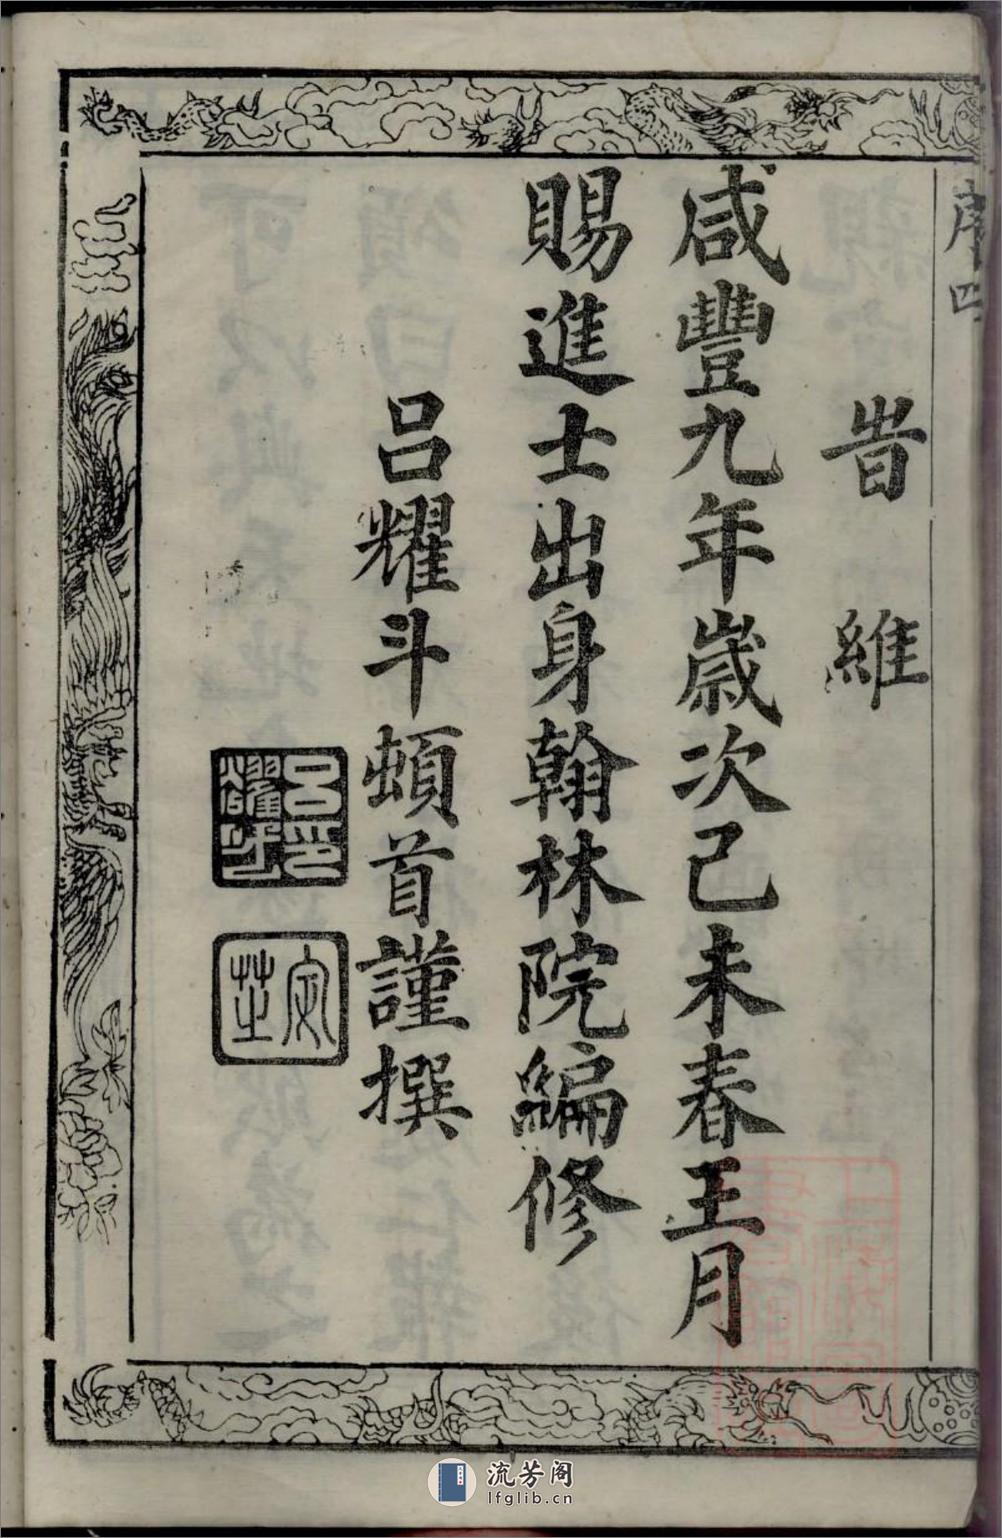 序四
旹維
咸豐九年歲次己未春王月
賜進士出身翰林院編修
呂耀斗頓首謹撰
流芳阁
lfglib.cn